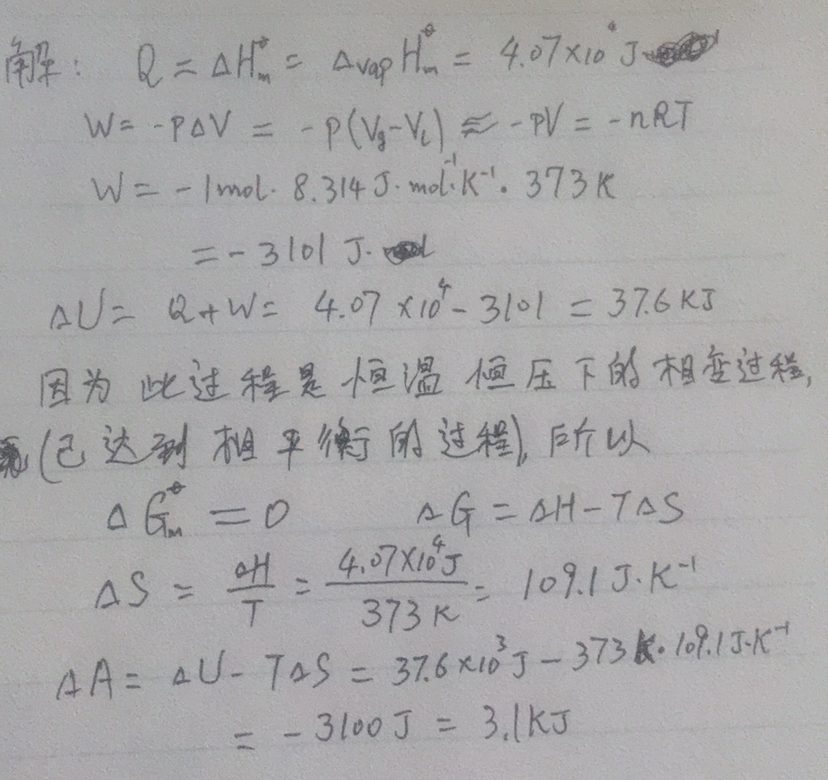 解: Q = ΔH_m^θ = Δ_vap H_m^θ = 4.07×10⁴ J
W = -PΔV = -P(V_g-V_l) ≈ -PV = -nRT
W = -1mol· 8.314 J·mol⁻¹·K⁻¹· 373K
= -3101 J·
ΔU = Q+W = 4.07×10⁴ - 3101 = 37.6 KJ
因为此过程是恒温恒压下的相变过程,
(已达到相平衡的过程), 所以
ΔG_m^θ = 0 ΔG = ΔH-TΔS
ΔS = ΔH/T = 4.07×10⁴J/373K = 109.1 J·K⁻¹
ΔA = ΔU - TΔS = 37.6×10³J - 373K·109.1J·K⁻¹
= -3100J = 3.1KJ